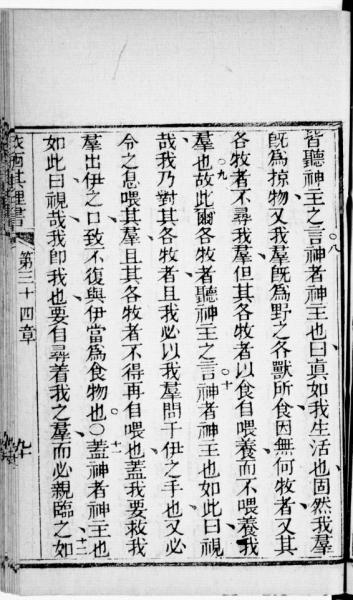 皆聽神王之言神者神王也曰真如我生活也固然我羣
既為掠物又我羣既為野之各獸所食因無何牧者又其
各牧者不尋我羣但其各牧者以食自喂養而不喂養我
羣也故此爾各牧者聽神王之言神者神王也如此曰視
哉我乃對其各牧者且我必以我羣問于伊之手也又必
令之息喂其羣且其各牧者不得再自喂也蓋我要救我
羣出伊之口致不復與伊當為食物也○蓋神者神王也
如此曰視哉我即我也要自尋着我之羣而必親臨之如
依西其理書
第三十四章